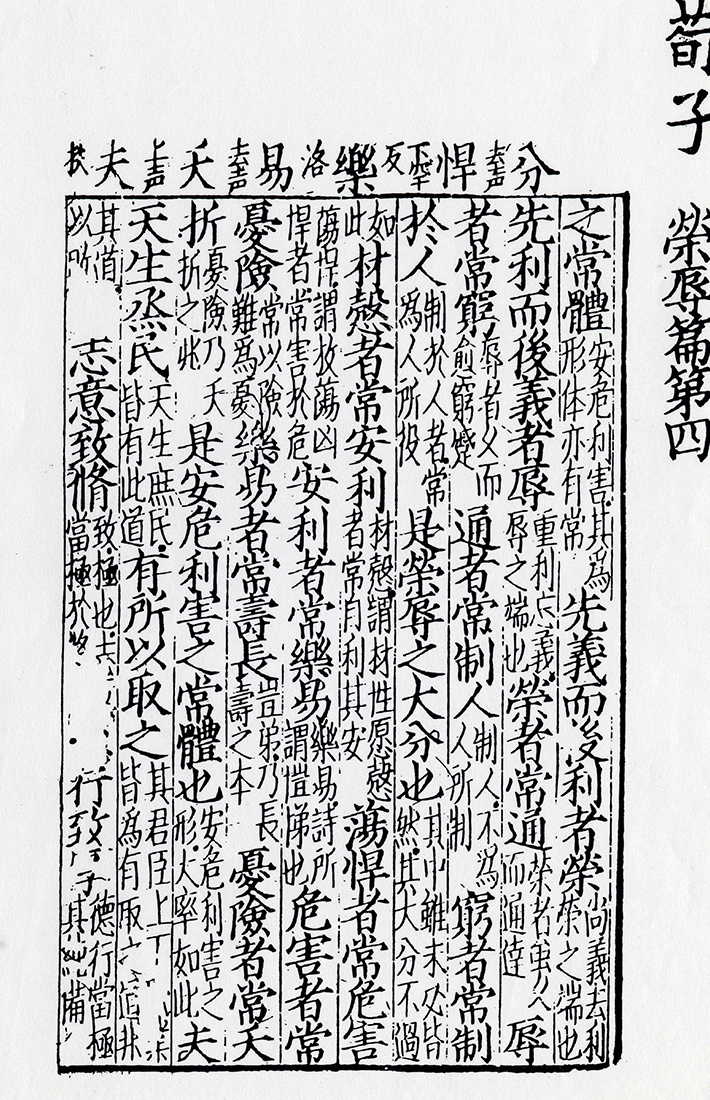 荀子　榮辱篇第四
分去聲悍下罕反樂洛易去聲夭上聲夫扶
之常體安危利害其為形体亦有常先義而後利者榮尚義去利榮之端也
先利而後義者辱重利忘義辱之端也榮者常通榮者而通達辱
者常窮辱者久而愈窮蹙通者常制人制人不為人所制窮者常制
於人制於人者常為人所役是榮辱之大分也其中雖未必皆然其大分不過
如此材慤者常安利材慤謂材性愿慤者常自利其安蕩悍者常危害
蕩悍謂放蕩凶悍者常害於危安利者常樂易樂易詩所謂愷悌也危害者常
憂險常以險難為憂樂易者常壽長豈弟乃長壽之本憂險者常夭
折憂險乃夭折之兆是安危利害之常體也安危利害之形大率如此夫
天生烝民天生庶民皆有此道有所以取之其君臣上下皆為有取之道非
其道以所志意致脩致極也當極於行致德行當極其備